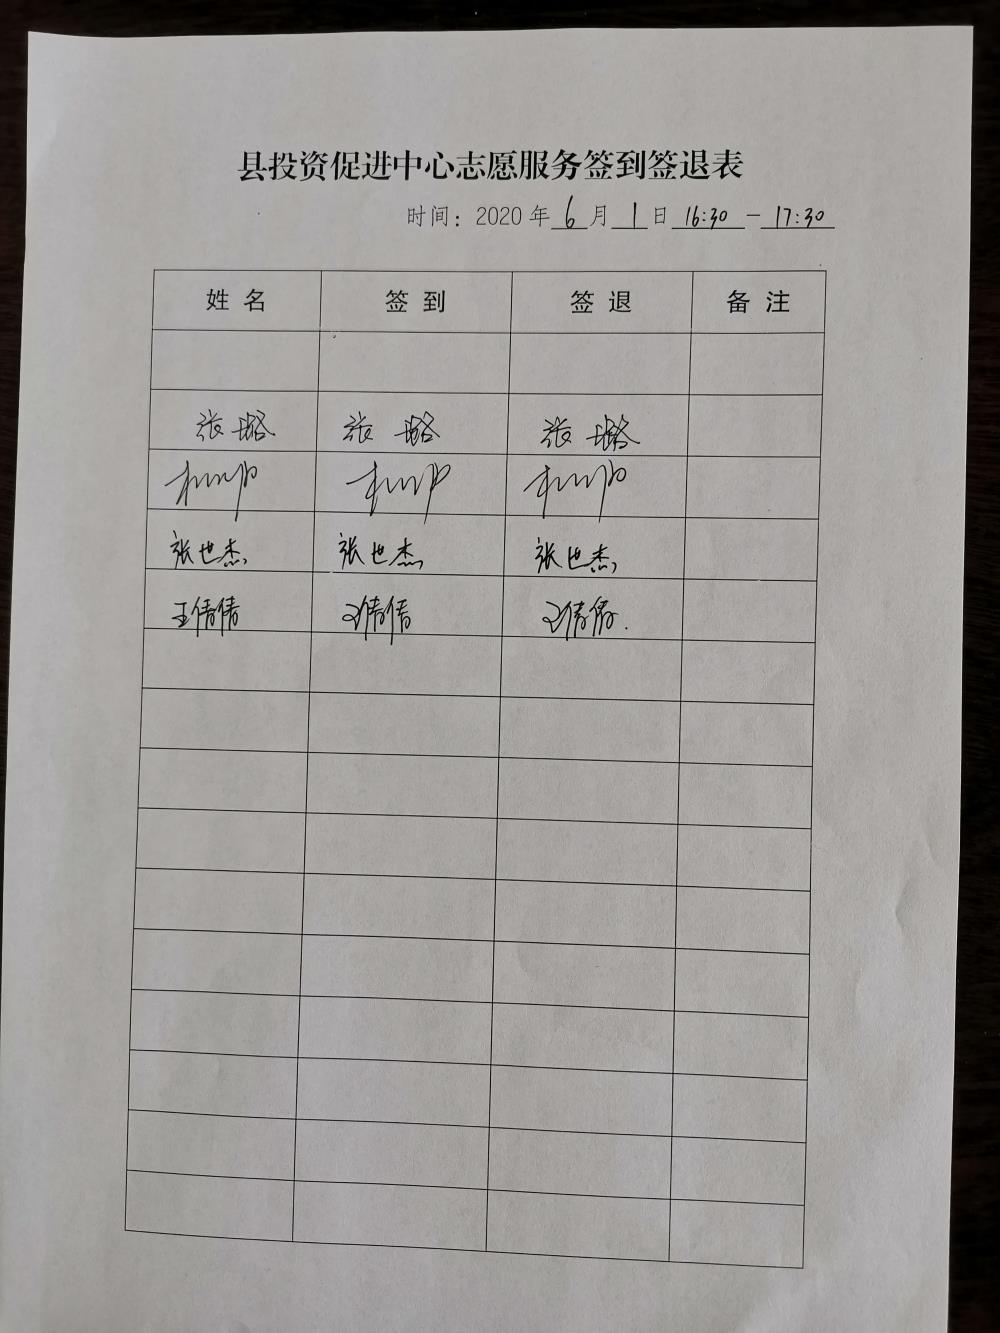 县投资促进中心志愿服务签到签退表
时间：2020年6月1日16:30－17:30
姓名 签到 签退 备注
张璐 张璐 张璐
张世杰 张世杰 张世杰
王倩倩 王倩倩 王倩倩